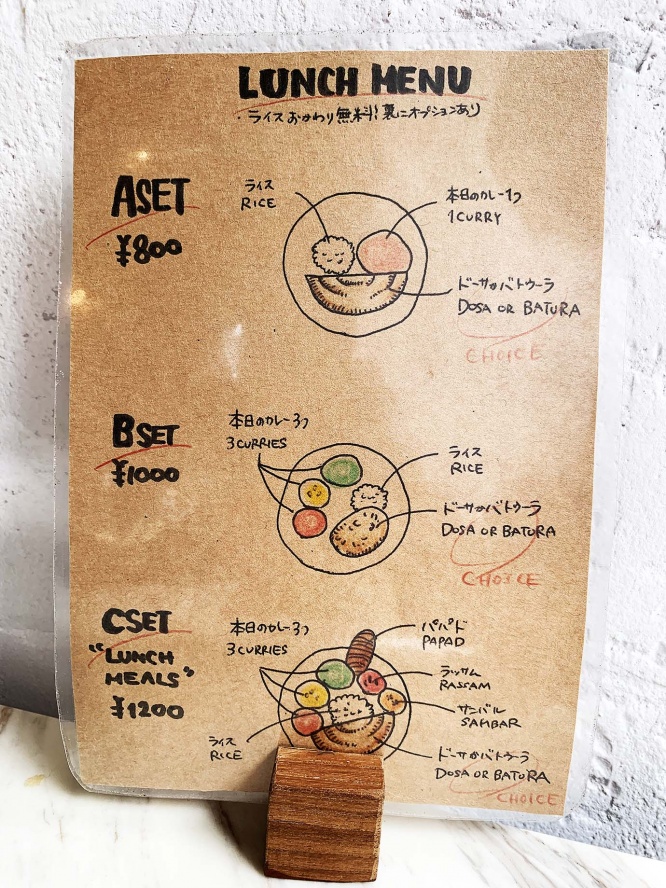 LUNCH MENU
・ライスおかわり無料! 裏にオプションあり
ASET
¥800
ライス
RICE
本日のカレー1つ
1CURRY
ドーサかバトゥーラ
DOSA OR BATURA
CHOICE
BSET
¥1000
本日のカレー3つ
3CURRIES
ライス
RICE
ドーサかバトゥーラ
DOSA OR BATURA
CHOICE
CSET
"LUNCH
MEALS"
¥1200
本日のカレー3つ
3CURRIES
パパド
PAPAD
ラッサム
RASSAM
サンバル
SAMBAR
ライス
RICE
ドーサかバトゥーラ
DOSA OR BATURA
CHOICE